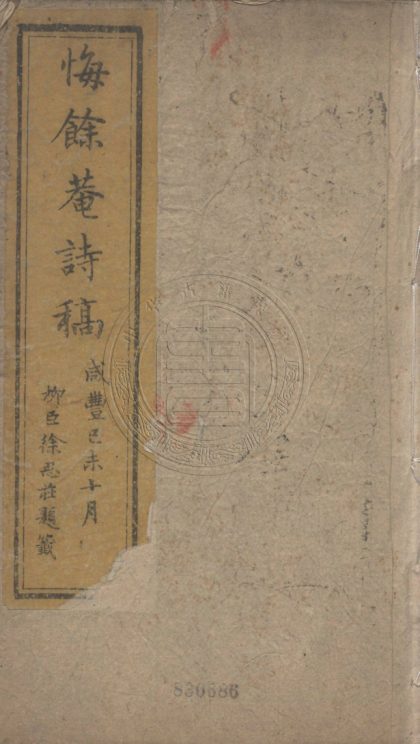 悔餘菴詩稿
咸豐己未十月
柳臣徐思莊題籤
830686